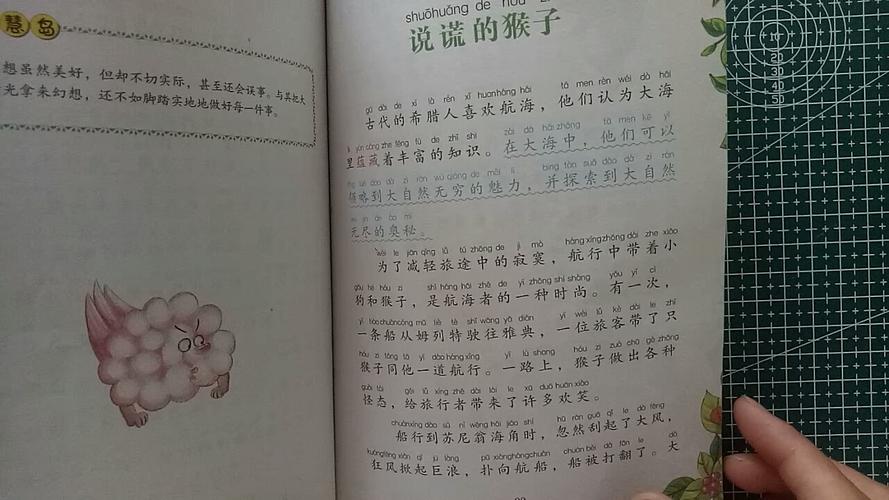 慧岛
想虽然美好，但却不切实际，甚至还会误事。与其把大
光拿来幻想，还不如脚踏实地地做好每一件事。
shuōhuǎng de hóu
说谎的猴子
gǔ dài de xī là rén xǐ huanháng hǎi tā men rèn wéi dà hǎi
古代的希腊人喜欢航海，他们认为大海
lǐ yùn cáng zhe fēng fù de zhī shi zài dà hǎi zhōng tā men kě yǐ
里蕴藏着丰富的知识。在大海中，他们可以
lǐng lüè dào dà zì rán wú qióng de mèi lì bìng tàn suǒ dào dà zì rán
领略到大自然无穷的魅力，并探索到大自然
wú jìn de ào mì
无尽的奥秘。
wèi le jiǎn qīng lǚ tú zhōng de jì mò háng xíng zhōng dài zhe xiǎo
为了减轻旅途中的寂寞，航行中带着小
gǒu hé hóu zi shì háng hǎi zhě de yì zhǒng shí shàng yǒu yí cì
狗和猴子，是航海者的一种时尚。有一次，
yì tiáo chuán cóng mǔ liè tè shǐ wǎng yǎ diǎn yí wèi lǚ kè dài le zhī
一条船从姆列特驶往雅典，一位旅客带了只
hóu zi tóng tā yí dào háng xíng yí lù shang hóu zi zuò chū gè zhǒng
猴子同他一道航行。一路上，猴子做出各种
guài tài gěi lǚ xíng zhě dài lái le xǔ duō huān xiào
怪态，给旅行者带来了许多欢笑。
chuán xíng dào sū ní wēng hǎi jiǎo shí hū rán guā qǐ le dà fēng
船行到苏尼翁海角时，忽然刮起了大风，
kuáng fēng xiān qǐ jù làng pū xiàng háng chuán chuán bèi dǎ fān le dà
狂风掀起巨浪，扑向航船，船被打翻了。大
10
20
30
40
50